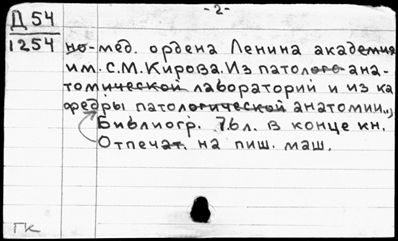 -2-
Д 54
1254
но-мед. ордена Ленина академия
им. С.М.Кирова. Из патолого-ана-
томической лабораторий и из ка
федры патологической анатомии.,
Библиогр. 76л. в конце кн.
Отпечат. на пиш. маш.
ГК